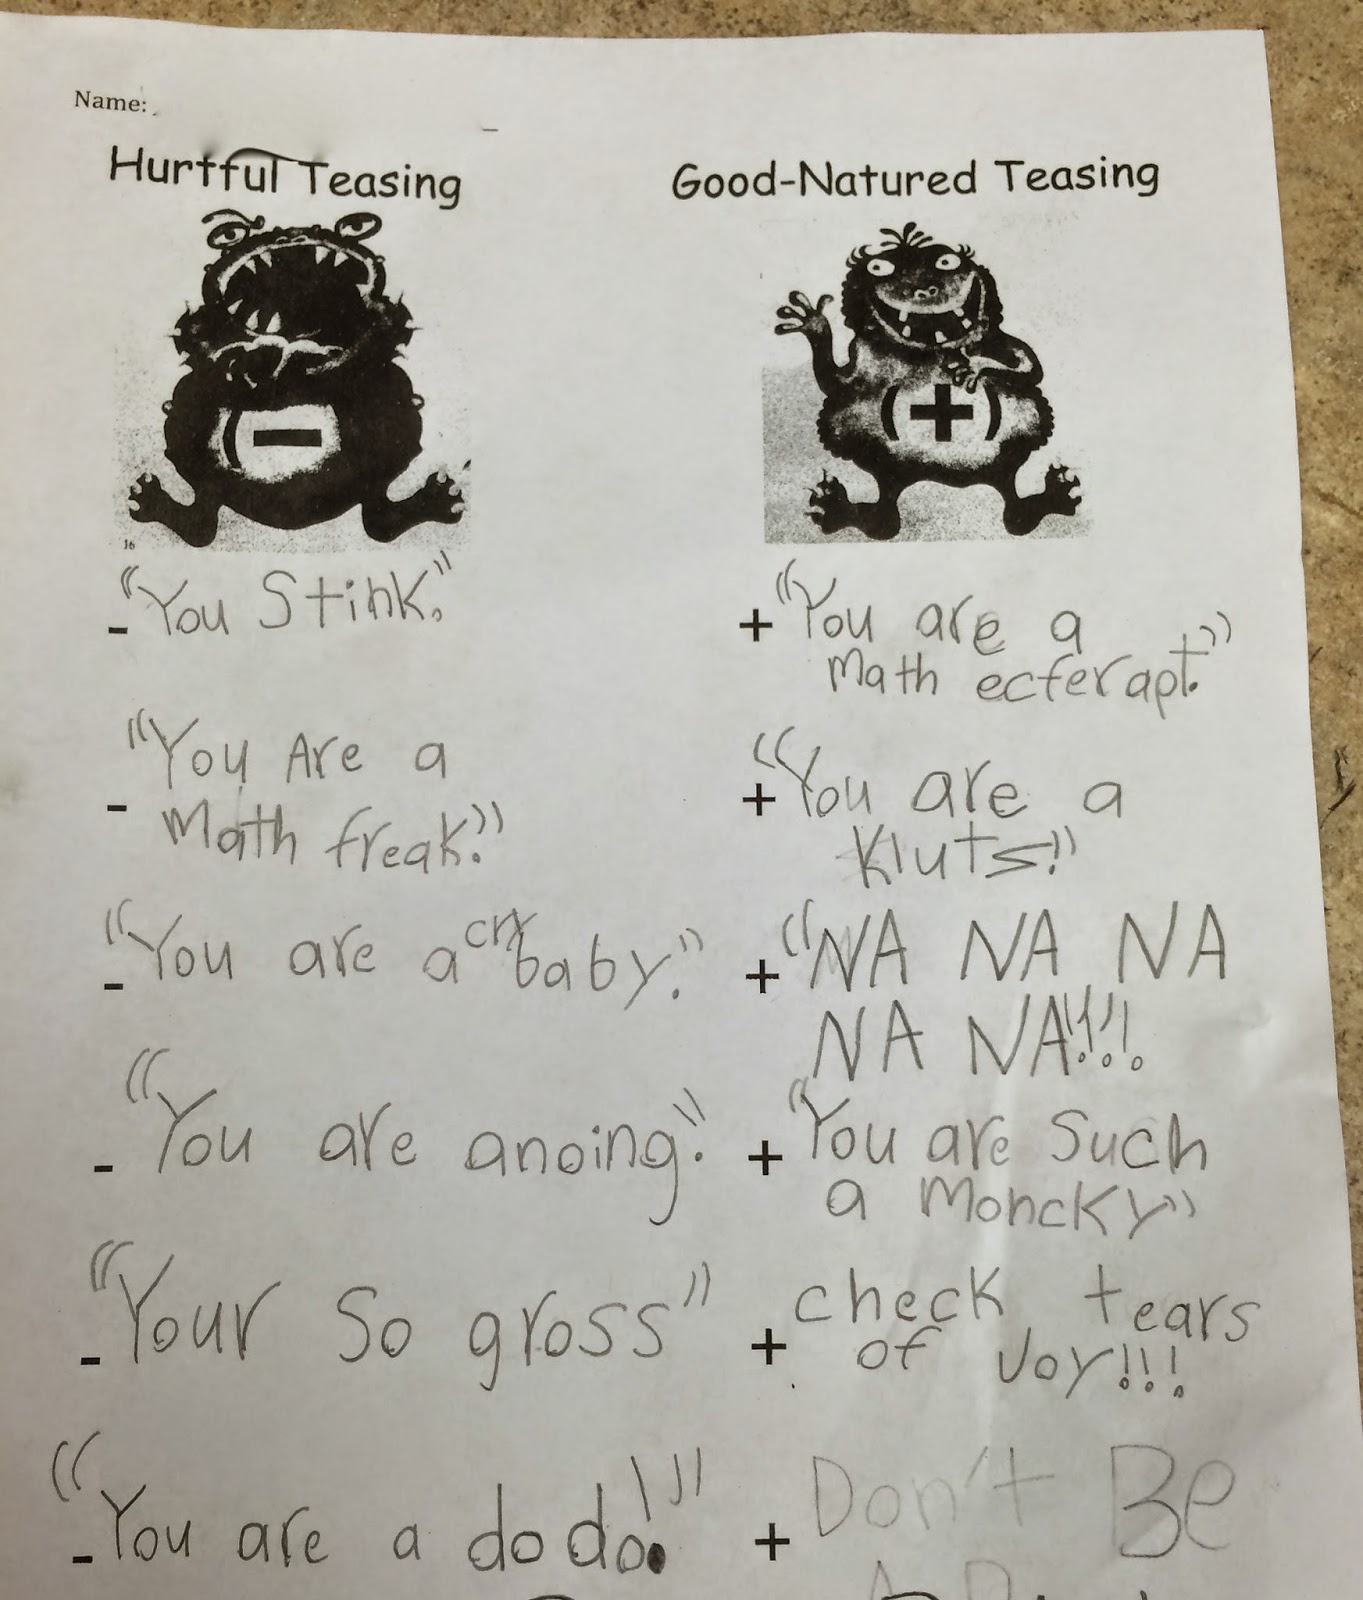 Name:
Hurtful Teasing
Good-Natured Teasing
(-
(+)
16
- "You Stink."
- "You Are a
math freak."
- "You are a cry baby."
- "You are anoing."
- "Your so gross"
- "You are a do do!"
+ "You are a
math ecferapt."
+ "You are a
Kluts!"
+ "NA NA NA
NA NA!!!.
+ "You are such
a moncky"
+ check tears
of Joy!!!
+ Don't Be
A